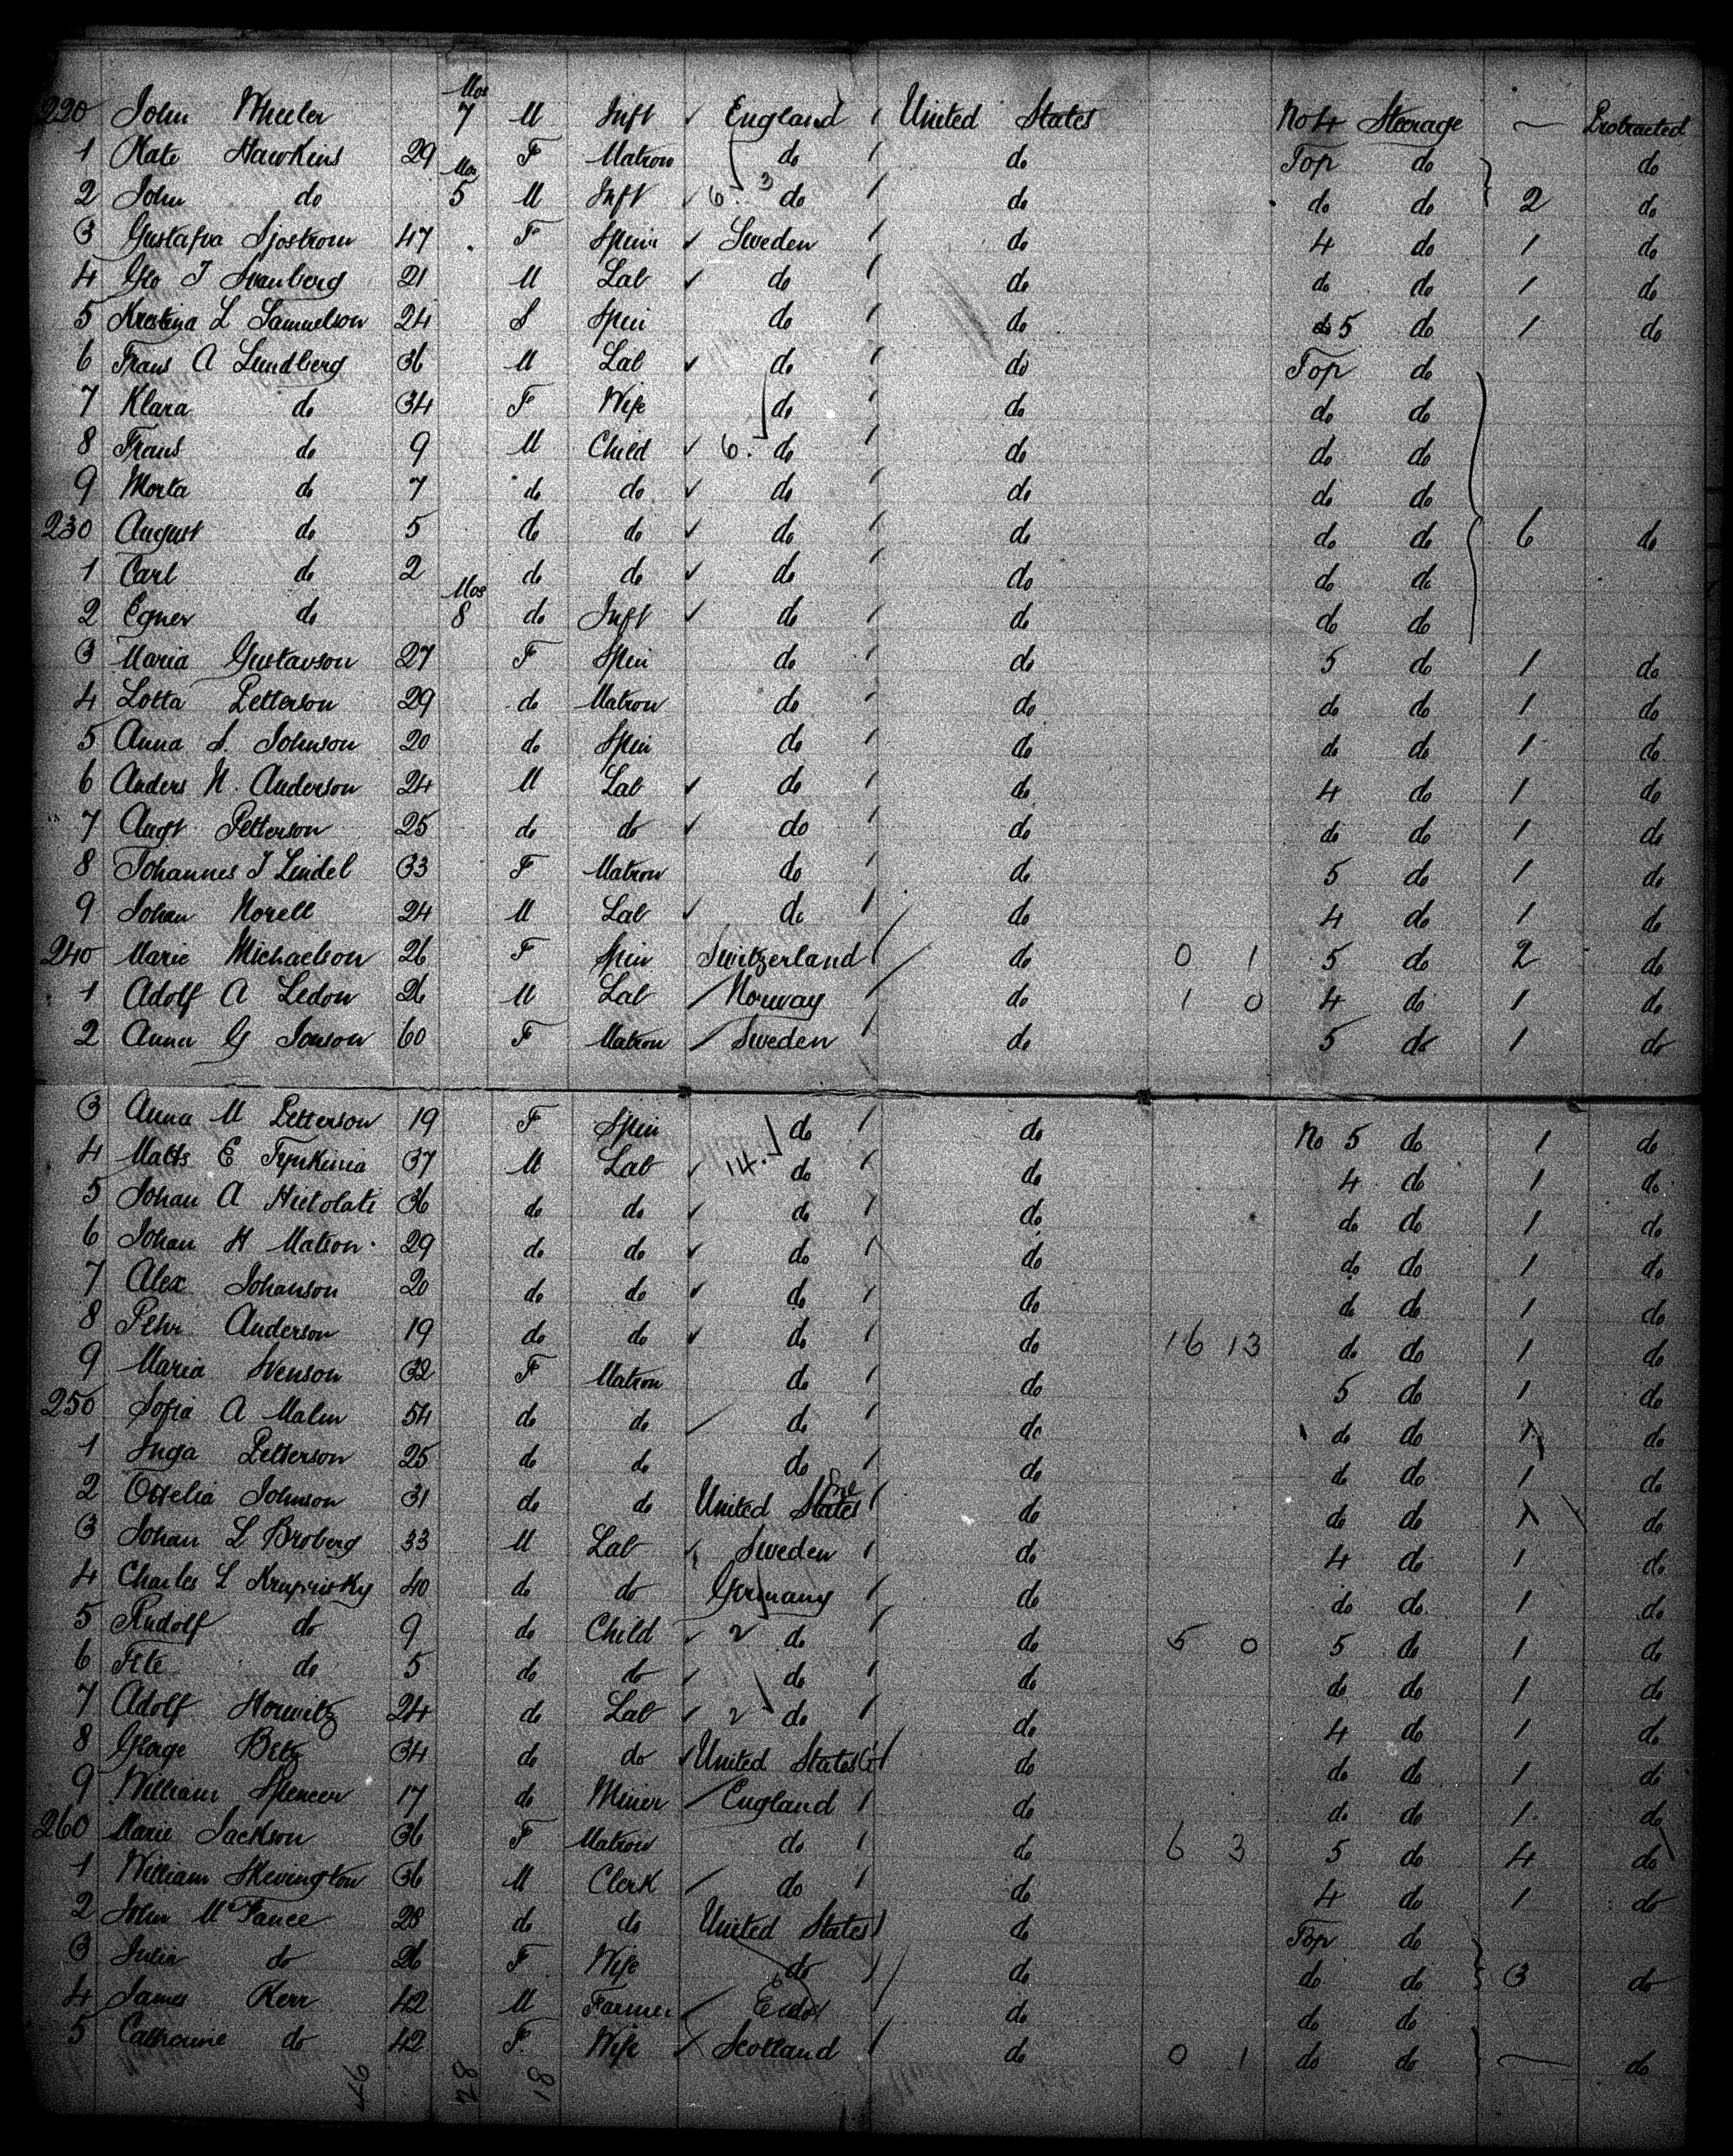 220 John Wheeler Mos 7 M Inft England United States No 4 Steerage — Protracted
1 Kate Hawkins 29 F Matron do do Top do do
2 John do Mos 5 M Inft 6. 3 do do do do 2 do
3 Gustafva Sjostrom 47 F Spin Sweden do 4 do 1 do
4 Geo J Svanberg 21 M Lab do do do do 1 do
5 Kristina L Samuelson 24 S Spin do do 5 do 1 do
6 Frans A Lundberg 36 M Lab do do Top do
7 Klara do 34 F Wife do do do do
8 Frans do 9 M Child 6. do do do do
9 Morta do 7 do do do do do do
230 August do 5 do do do do do do 6 do
1 Carl do 2 do do do do do do
2 Egner do Mos 8 do Inft do do do do
3 Maria Gustavson 27 F Spin do do 5 do 1 do
4 Lotta Petterson 29 do Matron do do do do 1 do
5 Anna S. Johnson 20 do Spin do do do do 1 do
6 Anders N. Anderson 24 M Lab do do 4 do 1 do
7 Augt Petterson 25 do do do do do do 1 do
8 Johannes J Lindel 33 F Matron do do 5 do 1 do
9 Johan Norell 24 M Lab do do 4 do 1 do
240 Marie Michaelson 26 F Spin Switzerland do 0 1 5 do 2 do
1 Adolf A Ledon 26 M Lab Norway do 1 0 4 do 1 do
2 Anna G Jonson 60 F Matron Sweden do 5 do 1 do
3 Anna M Petterson 19 F Spin do do No 5 do 1 do
4 Matts E 37 M Lab 14. do do 4 do 1 do
5 Johan A 36 do do do do do do 1 do
6 Johan H Matson 29 do do do do do do 1 do
7 Alex Johanson 20 do do do do do do 1 do
8 Pehr Anderson 19 do do do do 16 13 do do 1 do
9 Maria Svenson 32 F Matron do do 5 do 1 do
250 Sofia A Malm 54 do do do do do do 1 do
1 Inga Petterson 25 do do do do do do 1 do
2 Johnson 31 do do United States do do do 1 do
3 Johan L Broberg 33 M Lab Sweden do 4 do 1 do
4 Charles L 40 do do Germany do do do 1 do
5 Rudolf do 9 do Child 2 do do 5 0 5 do 1 do
6 do 5 do do do do do do 1 do
7 Adolf Horwitz 24 do Lab 2 do do 4 do 1 do
8 George Betz 34 do do United States do do do 1 do
9 William Spencer 17 do Miner England do do do 1 do
260 Marie Jackson 36 F Matron do do 6 3 5 do 4 do
1 William Skevington 36 M Clerk do do 4 do 1 do
2 John 28 do do United States do Top do
3 Julia do 26 F Wife do do do do 3 do
4 James Kerr 42 M Farmer do do do
5 Catherine do 42 F. Wife Scotland do 0 1 do do — do
46 28 18